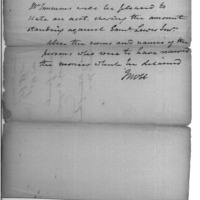 Mr Simmons will be pleased to
state an acct shewing the amount
standing against Saml Lewis Jnr
Also the sums and names of the
persons who were to have received
the monies which he obtained